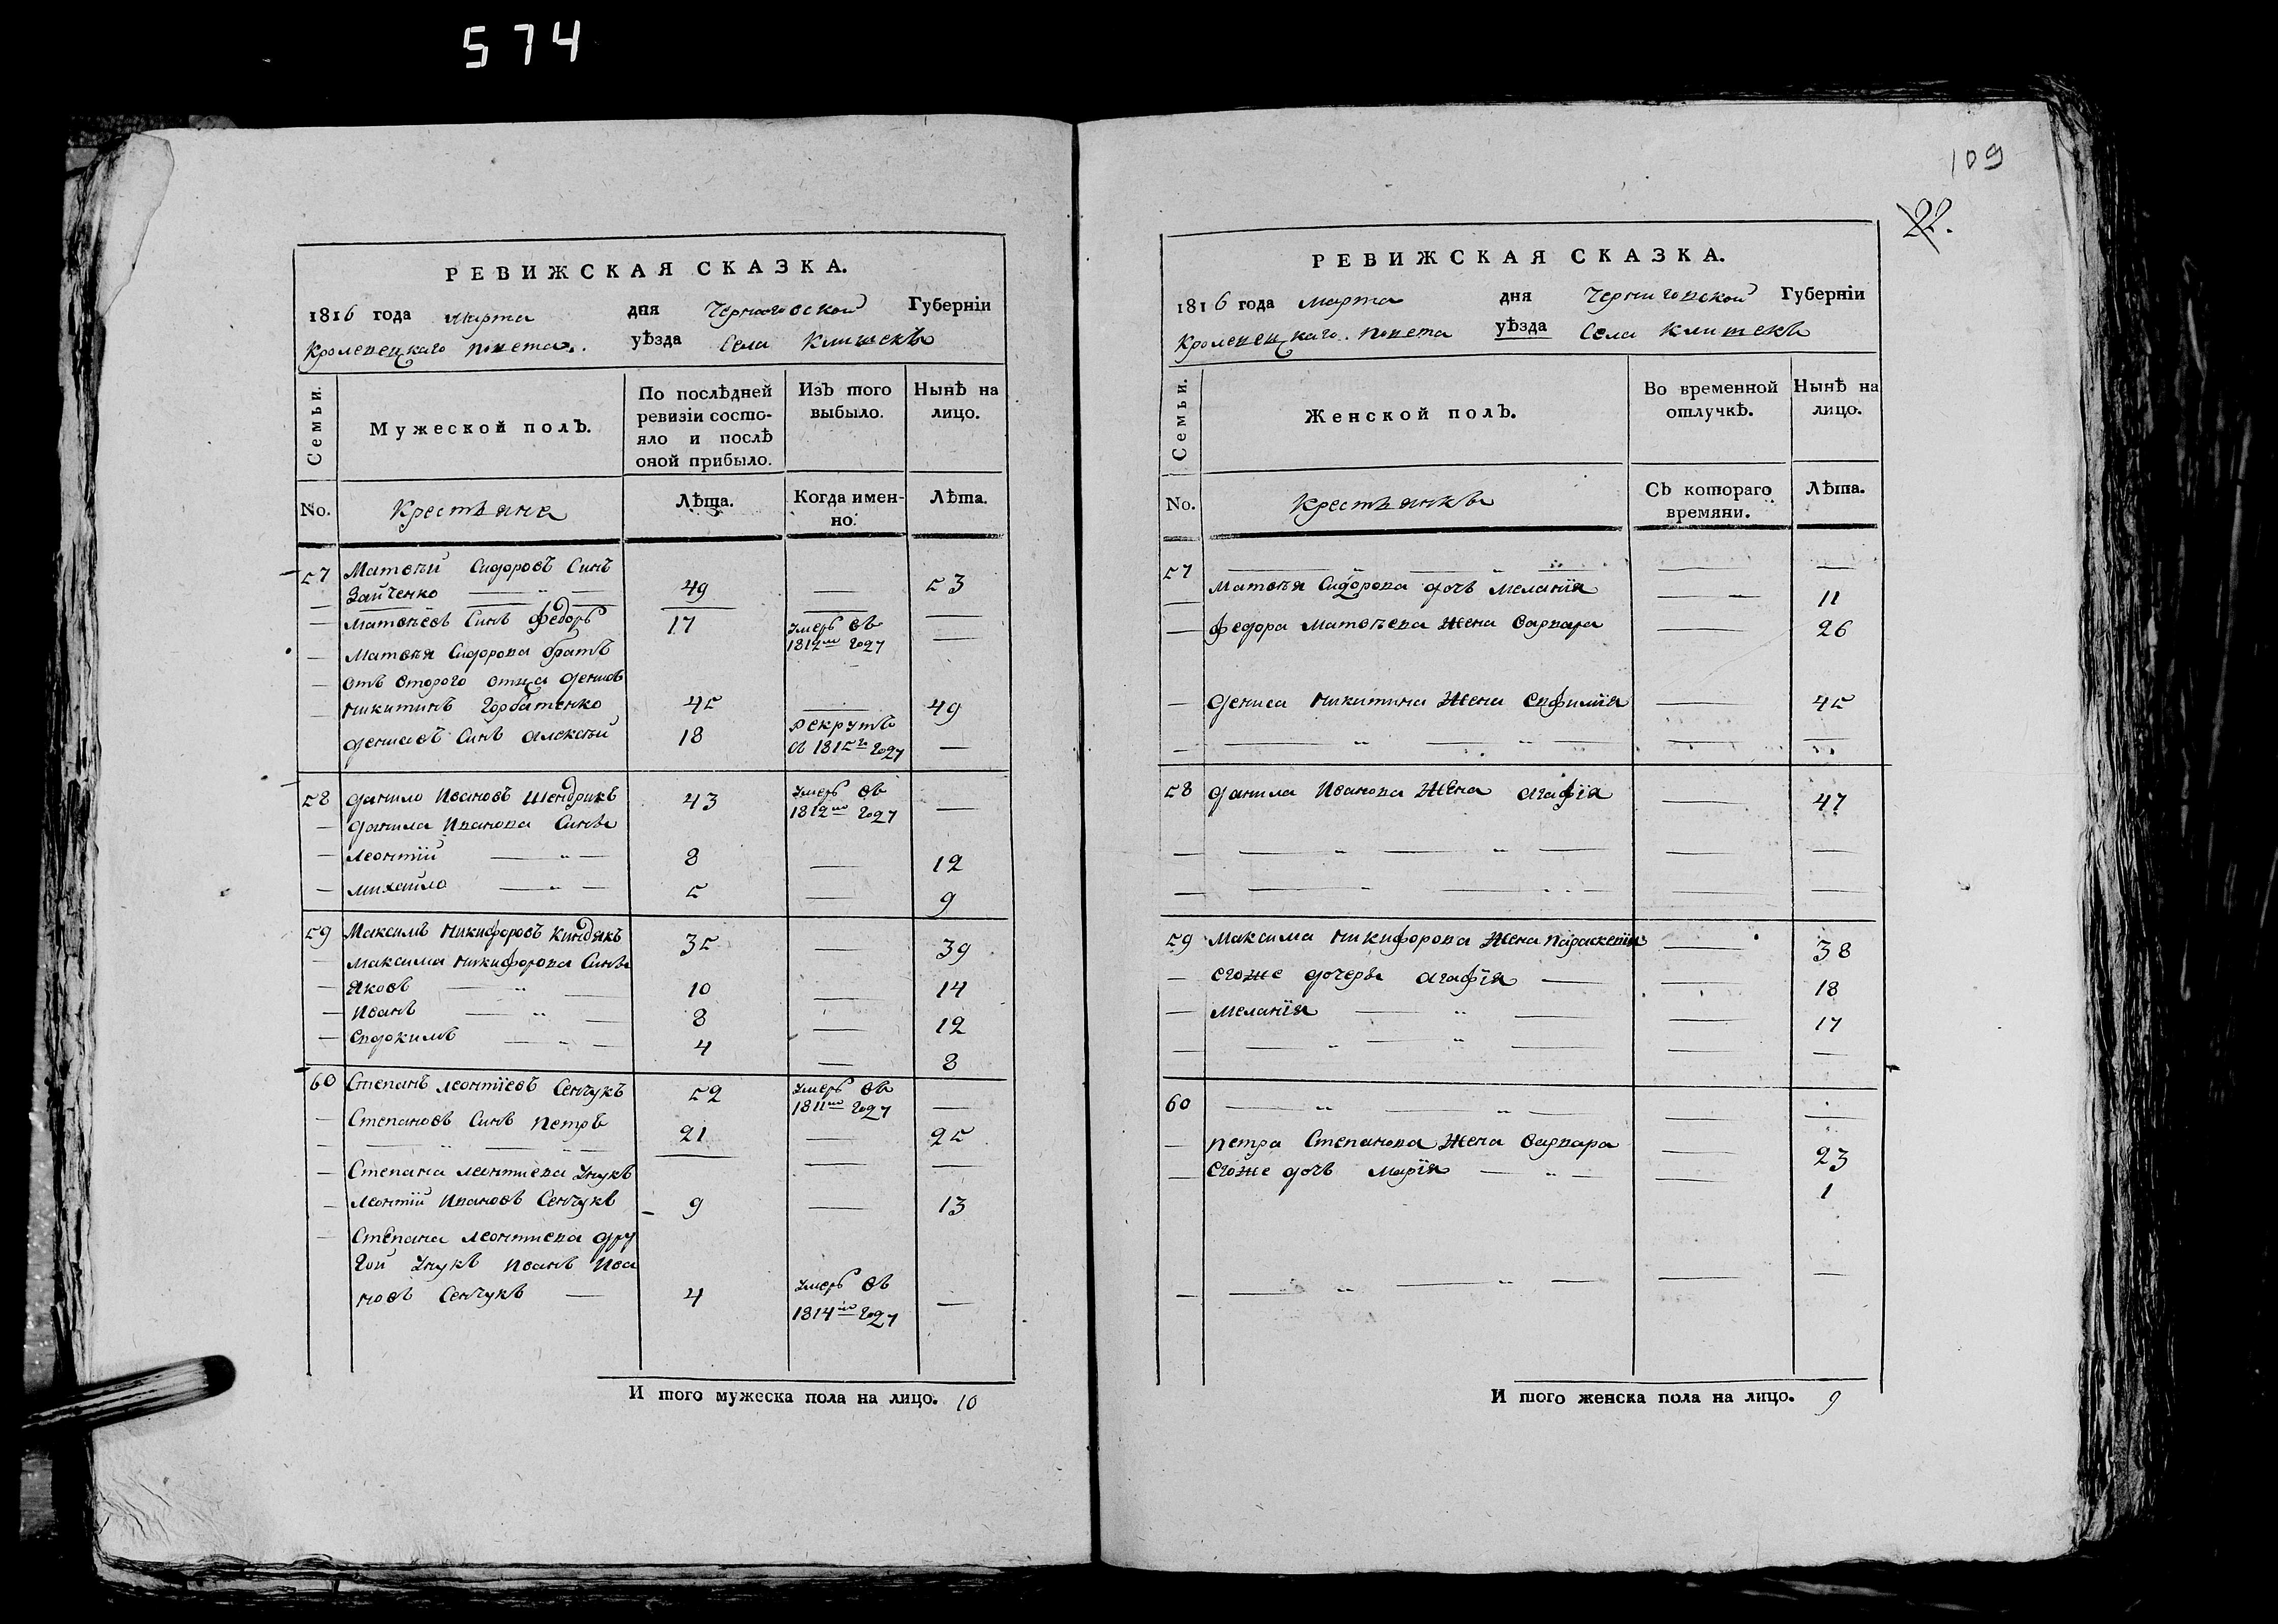 574
109
22.
РЕВИЖСКАЯ СКАЗКА.
1816 года марта дня Черниговской Губернiи
Кролевецкаго повета уѣзда Села Клишекъ
Семьи.
Мужеской полъ.
По послѣдней ревизiи состо-
яло и послѣ
оной прибыло.
Изъ того
выбыло.
Нынѣ на
лицо.
No. Крестьяне Лѣта. Когда имен-
но. Лѣта.
57 Матвѣй Сидоровъ Синъ
Зайченко 49 — 53
— Матвѣевъ Синъ Федоръ 17 умеръ въ
1812м году —
— Матвѣя Сидорова братъ
— отъ второго отца Денисъ
— Никитинъ Горбатенко 45 — 49
Денисовъ Синъ Алексѣй 18 рекрутъ
въ 1815г году —
58 Данило Ивановъ Шендрикъ 43 умеръ въ
1812м году —
— Данила Иванова Синъ
— Леонтiй 8 — 12
— Михайло 5 — 9
59 Максимъ Никифоровъ Киндякъ 35 — 39
— Максима Никифорова Синъ
— Яковъ 10 — 14
— Иванъ 8 — 12
— Евдокимъ 4 — 8
60 Степанъ Леонтiевъ Сенчукъ 52 умеръ въ
1811м году —
— Степановъ Синъ Петръ 21 — 25
— Степана Леонтиева Унукъ
— Леонтiй Ивановъ Сенчукъ 9 — 13
— Степана Леонтиева дру
гой Унукъ Иванъ Ива
новъ Сенчукъ — 4 умеръ въ
1814м году —
И того мужеска пола на лицо. 10
РЕВИЖСКАЯ СКАЗКА.
1816 года марта дня Черниговской Губернiи
Кролевецкаго повета уѣзда Села Клишекъ
Семьи.
Женской полъ.
Во временной
отлучкѣ.
Нынѣ на
лицо.
No. Крестьянкъ Съ котораго
времяни. Лѣта.
57 — — —
— Матвѣя Сидорова дочъ Меланiя — 11
— Федора Матвѣева Жена Варвара — 26
— Дениса Никитина Жена Евфимiя — 45
— — — —
58 Данила Иванова Жена Агафiя — 47
— — — —
— — — —
59 Максима Никифорова Жена Параскевiя — 38
— Егоже дочеръ Агафiя — 18
— Меланiя — 17
— — — —
60 — — —
— Петра Степанова Жена Варвара — 23
— Егоже дочъ Марiя — 1
— — — —
И того женска пола на лицо. 9